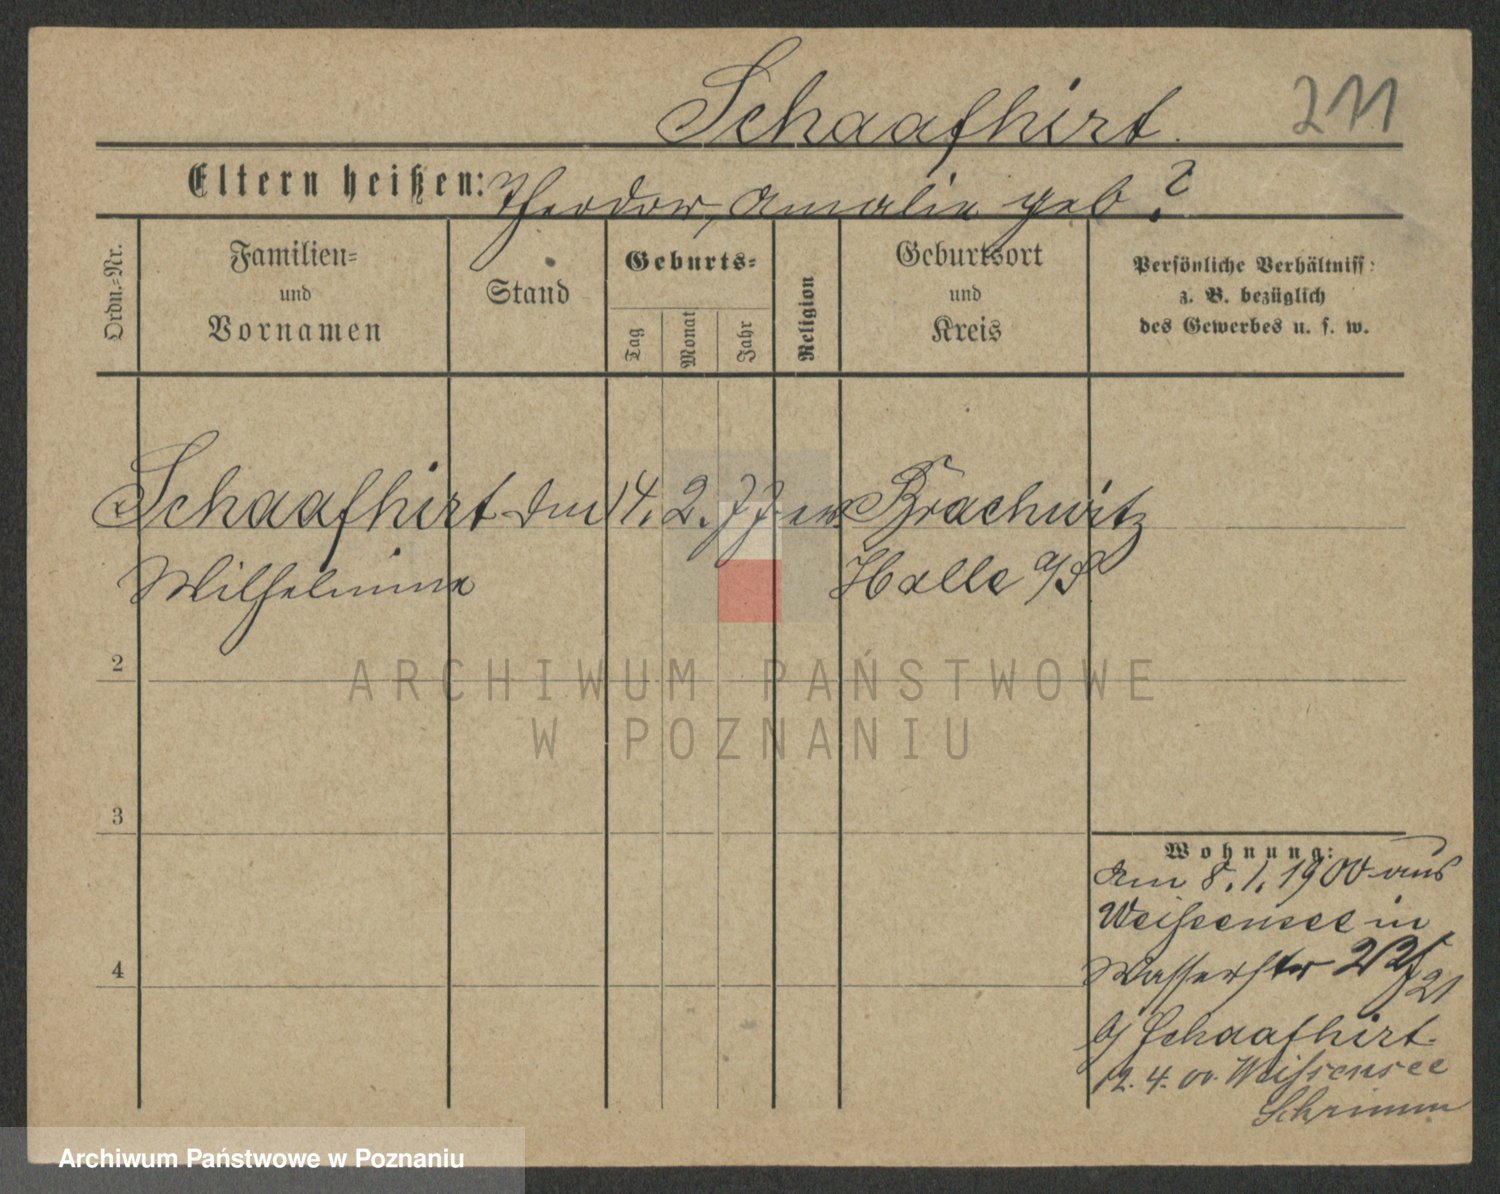 Schaafhirt.
211
Eltern heißen: Theodor, Amalie geb. ?
Ordn.-Nr.
Familien-
und
Vornamen
Stand
Geburts-
Tag
Monat
Jahr
Religion
Geburtsort
und
Kreis
Persönliche Verhältniss
z. B. bezüglich
des Gewerbes u. s. w.
Schaafhirt 14. 2. 77 ev Brachwitz
Wilhelmine Halle a/S
2
3
4
Wohnung:
am 8. 1. 1900 aus
Weißensee in
Wasserstr 22/21
b/ Schaafhirt.
12. 4. 00. Weißensee
Schrimm
ARCHIWUM PAŃSTWOWE
W POZNANIU
Archiwum Państwowe w Poznaniu